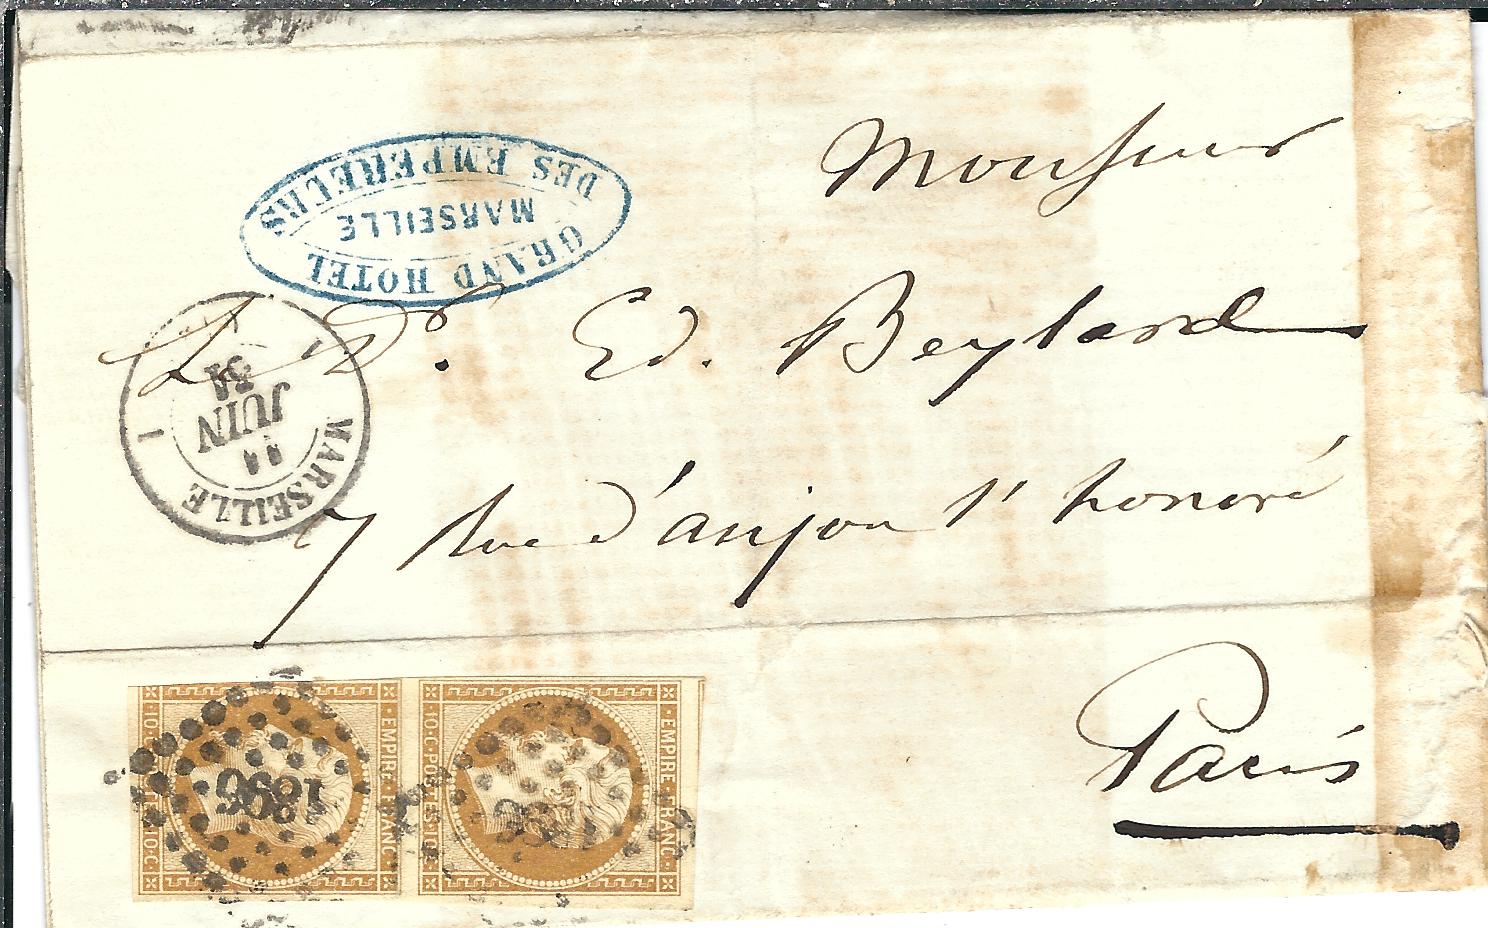 GRAND HOTEL
DES EMPEREURS
MARSEILLE
Monsieur
Le Dr. Ed. Beylard
MARSEILLE
11
JUIN
1
7 rue d'anjou St honoré
Paris
EMPIRE FRANC
10 · C · POSTES · 10 · C
1896
EMPIRE FRANC
10 · C · POSTES · 10 · C
1896